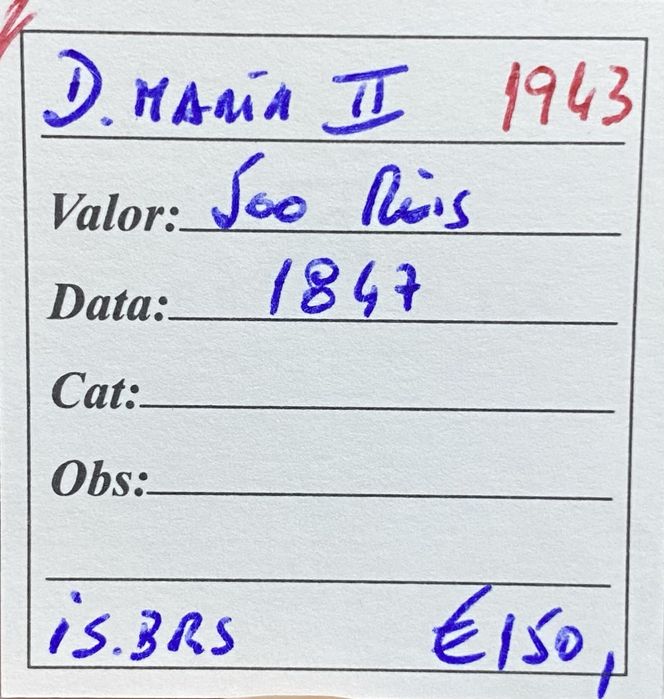 D. MARIA II 1943
Valor: 500 Réis
Data: 1847
Cat:
Obs:
is.BRS €150,